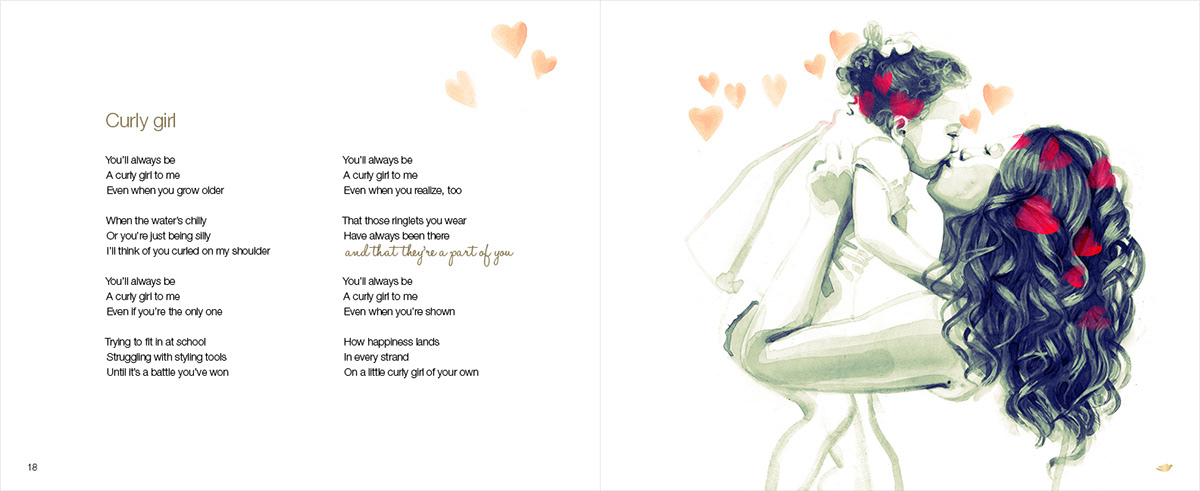 Curly girl
You'll always be
A curly girl to me
Even when you grow older
When the water's chilly
Or you're just being silly
I'll think of you curled on my shoulder
You'll always be
A curly girl to me
Even if you're the only one
Trying to fit in at school
Struggling with styling tools
Until it's a battle you've won
You'll always be
A curly girl to me
Even when you realize, too
That those ringlets you wear
Have always been there
and that they're a part of you
You'll always be
A curly girl to me
Even when you're shown
How happiness lands
In every strand
On a little curly girl of your own
18